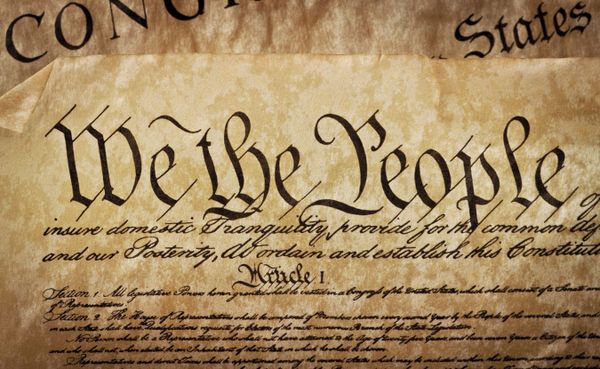 CONG
States
We the People
insure domestic Tranquility, provide for the common def
and our Posterity, do ordain and establish this Constitut
Article I
Section 1. All legislative Powers herein granted shall be vested in a Congress of the United States, which shall consist of a Senate and
of Representatives.
Section 2. The House of Representatives shall be composed of Members chosen every second Year by the People of the several States, and
in each State shall have Qualifications requisite for Electors of the most numerous Branch of the State Legislature.
No Person shall be a Representative who shall not have attained to the Age of twenty five Years, and been seven Years a Citizen of the
and who shall not, when elected, be an Inhabitant of that State in which he shall be chosen.
Representatives and direct Taxes shall be apportioned among the several States which may be included within this Union, according to